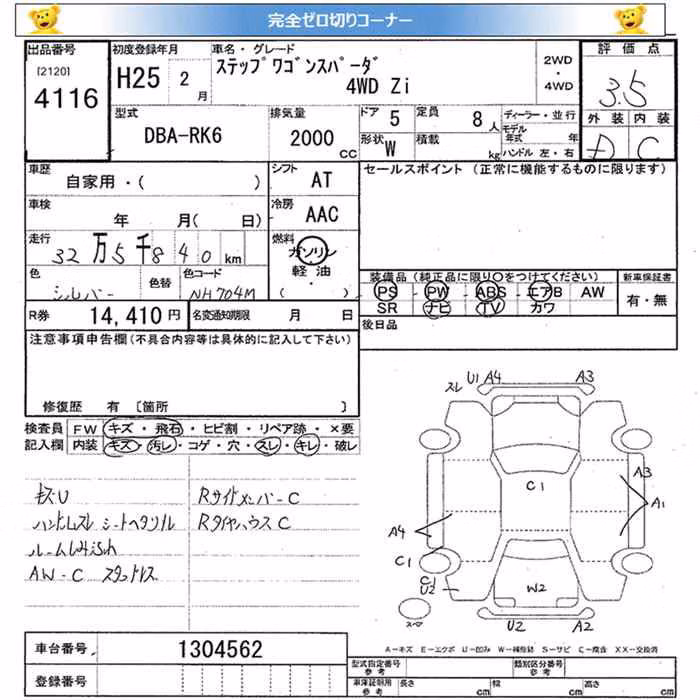 完全ゼロ切りコーナー
出品番号
[2120]
4116
初度登録年月
H25 2 月
車名・グレード
ステップワゴンスパーダ
4WD Zi
2WD
・
4WD
評価点
3.5
外装 内装
D C
型式
DBA-RK6
排気量
2000 CC
ドア 5
定員 8 人
形状 W
積載 kg
ディーラー・並行
モデル年式 年
ハンドル 左・右
車歴
自家用・( )
シフト AT
セールスポイント (正常に機能するものに限ります)
車検
年 月( 日)
冷房 AAC
走行
32 万 5 千 8 4 0 km
燃料
ガソリン
軽油
( )
色
シルバー
色替
色コード
NH704M
装備品 (純正品に限り○をつけてください)
PS PW ABS エアB AW
SR ナビ TV カワ
新車保証書
有・無
R券 14,410 円
名変通知期限 月 日
後日品
注意事項申告欄(不具合内容等は具体的に記入して下さい)
修復歴 有 [箇所 ]
検査員記入欄
FW キズ・飛石・ヒビ割・リペア跡・×要
内装 キズ・汚レ・コゲ・穴・スレ・キレ・破レ
キズU
ハンドルスレ シートヘタリ
AW-C スタッドレス
RサイドメンバーC
RタイヤハウスC
スレ U1 A4 A3
C1
A3
A1
A4
C1
C1
U2
W2
U2 A2
A-キズ E-エクボ U-凹み W-補修跡 S-サビ C-腐食 XX-交換済
車台番号 1304562
登録番号
型式指定番号 参考
類別区分番号 参考
車庫証明用 参考
長さ cm
幅 cm
高さ cm